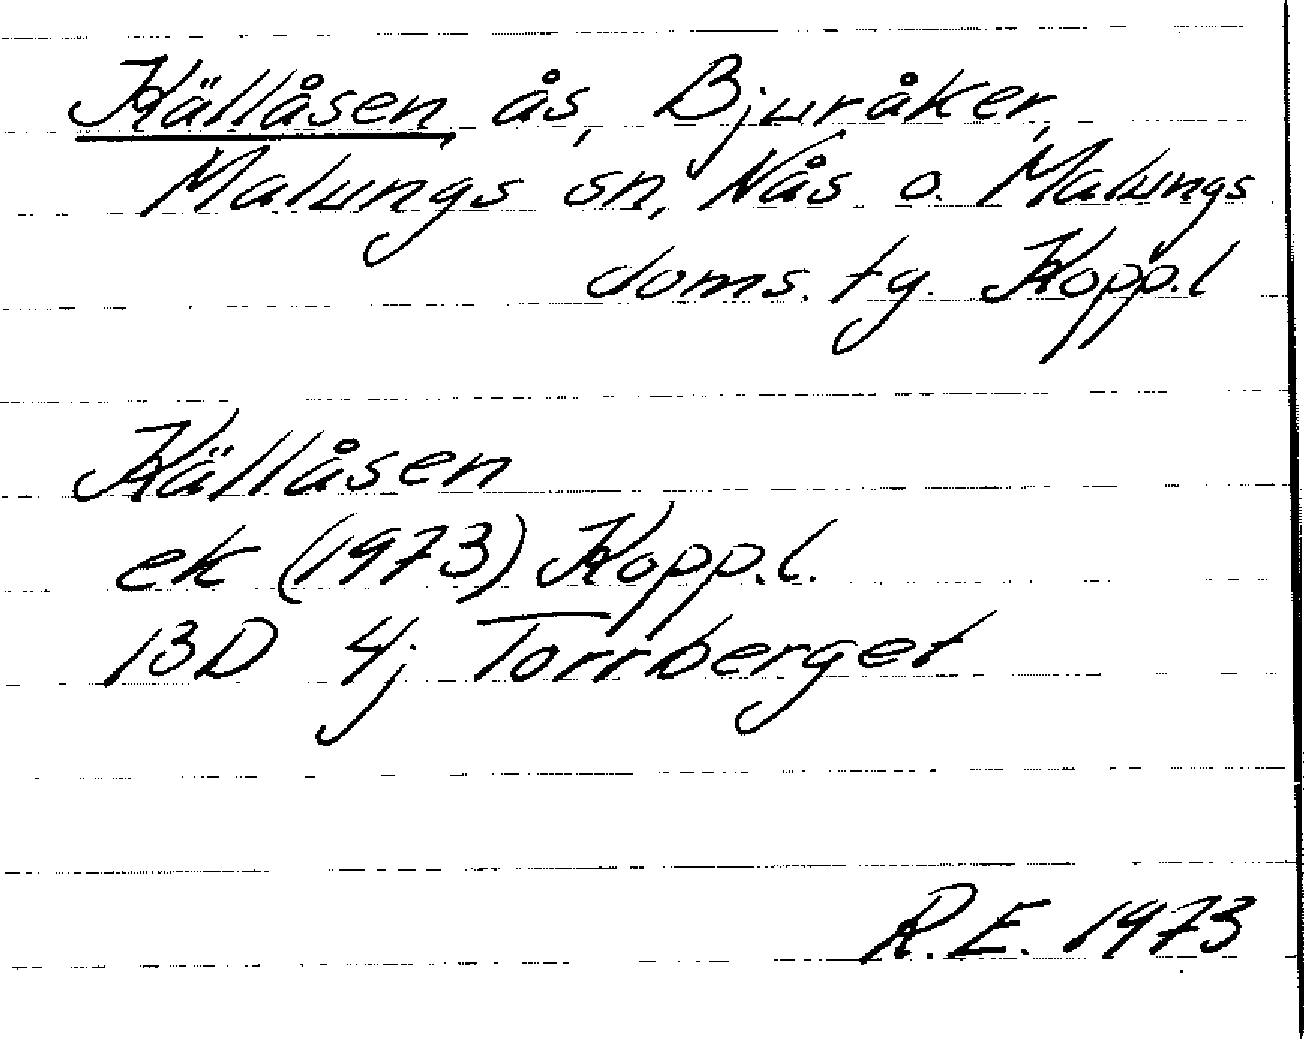 Källåsen, ås, Bjuråker,
Malungs sn, Nås o. Malungs
doms. tg. Kopp.l
Källåsen
ek (1973) Kopp.l.
13D 4j Torrberget
R.E. 1973